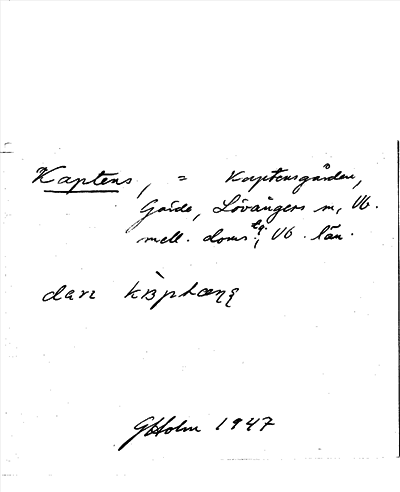 Kaptens, = Kaptensgården,
Gärde, Lövångers sn, Vb.
mell. doms.
sg., Vb. län.
GHolm 1947